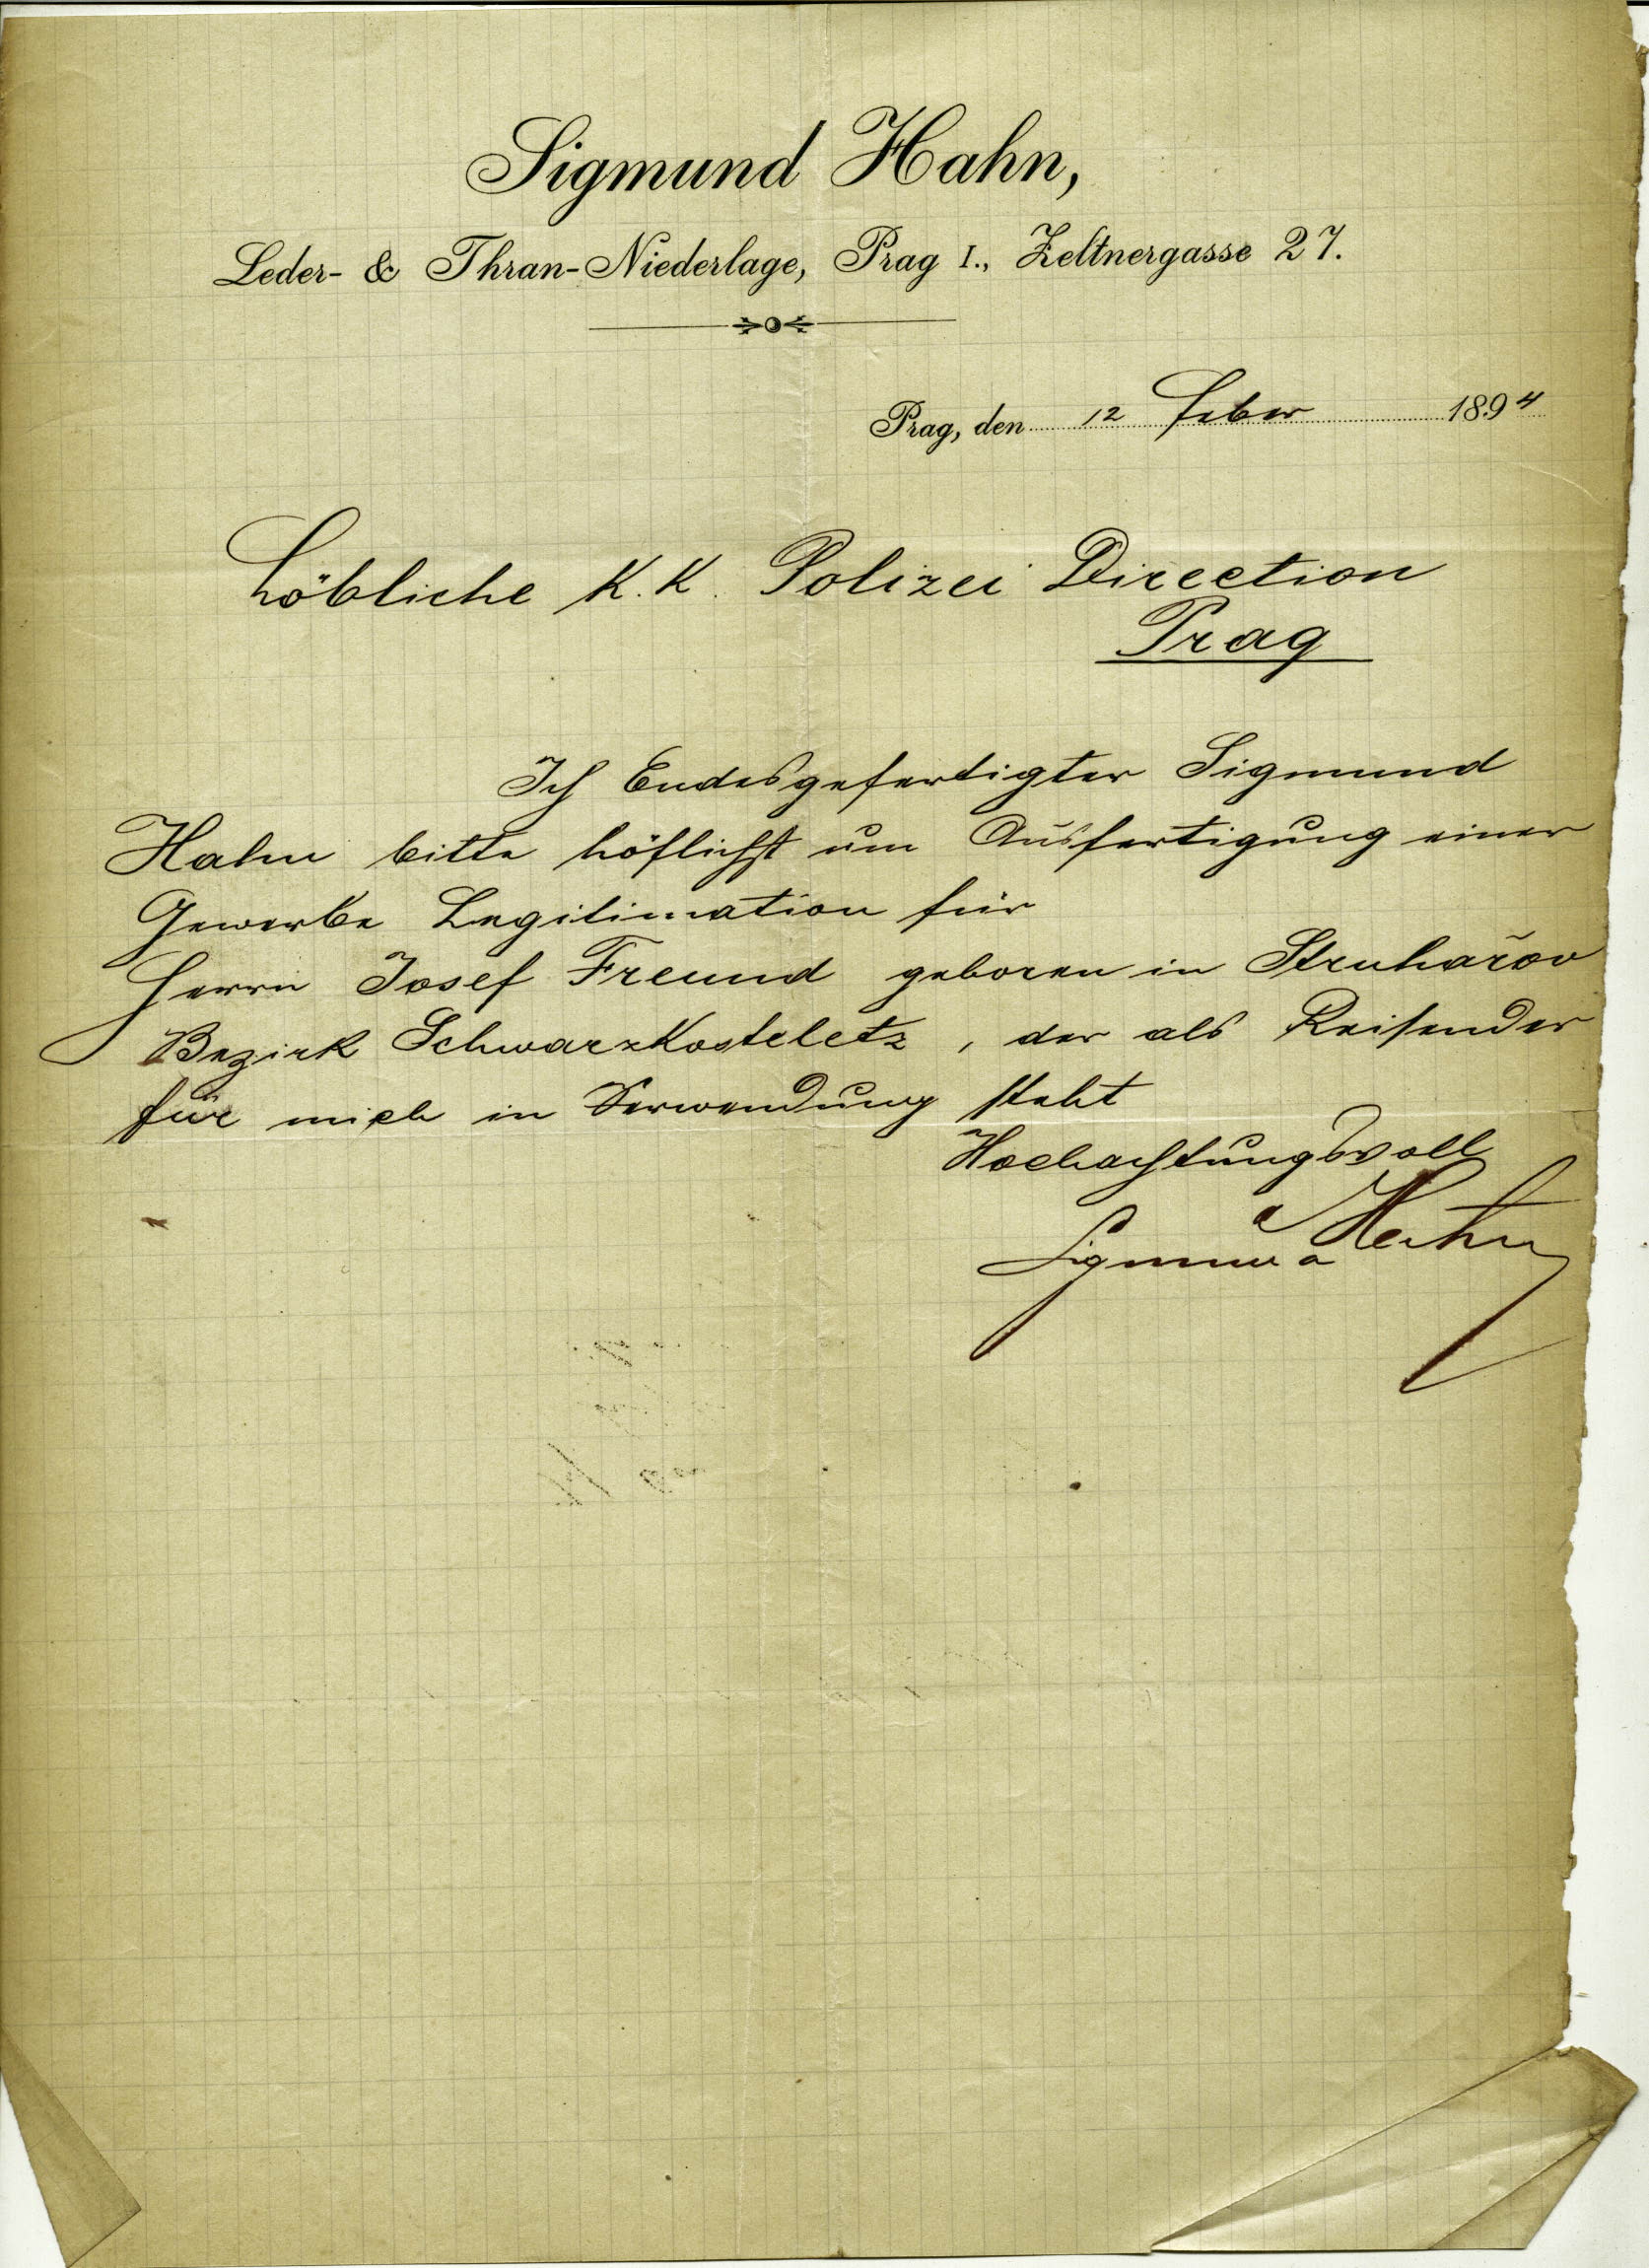 Sigmund Hahn,
Leder- & Thran-Niederlage, Prag I., Zeltnergasse 27.
Prag, den 12 Feber 1894
Löbliche K. K. Polizei Direction
Prag
Ich Endesgefertigter Sigmund
Hahn bitte höflichst um Ausfertigung einer
Gewerbe Legitimation für
Herrn Josef Freund geboren in Struhařov
Bezirk Schwarzkosteletz, der als Reisender
für mich in Verwendung steht
Hochachtungsvoll
Sigmund Hahn